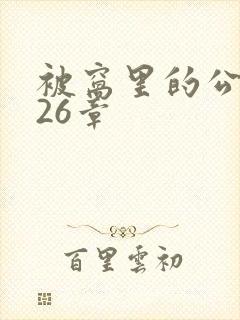 被窝里的公
26章
百里雲初